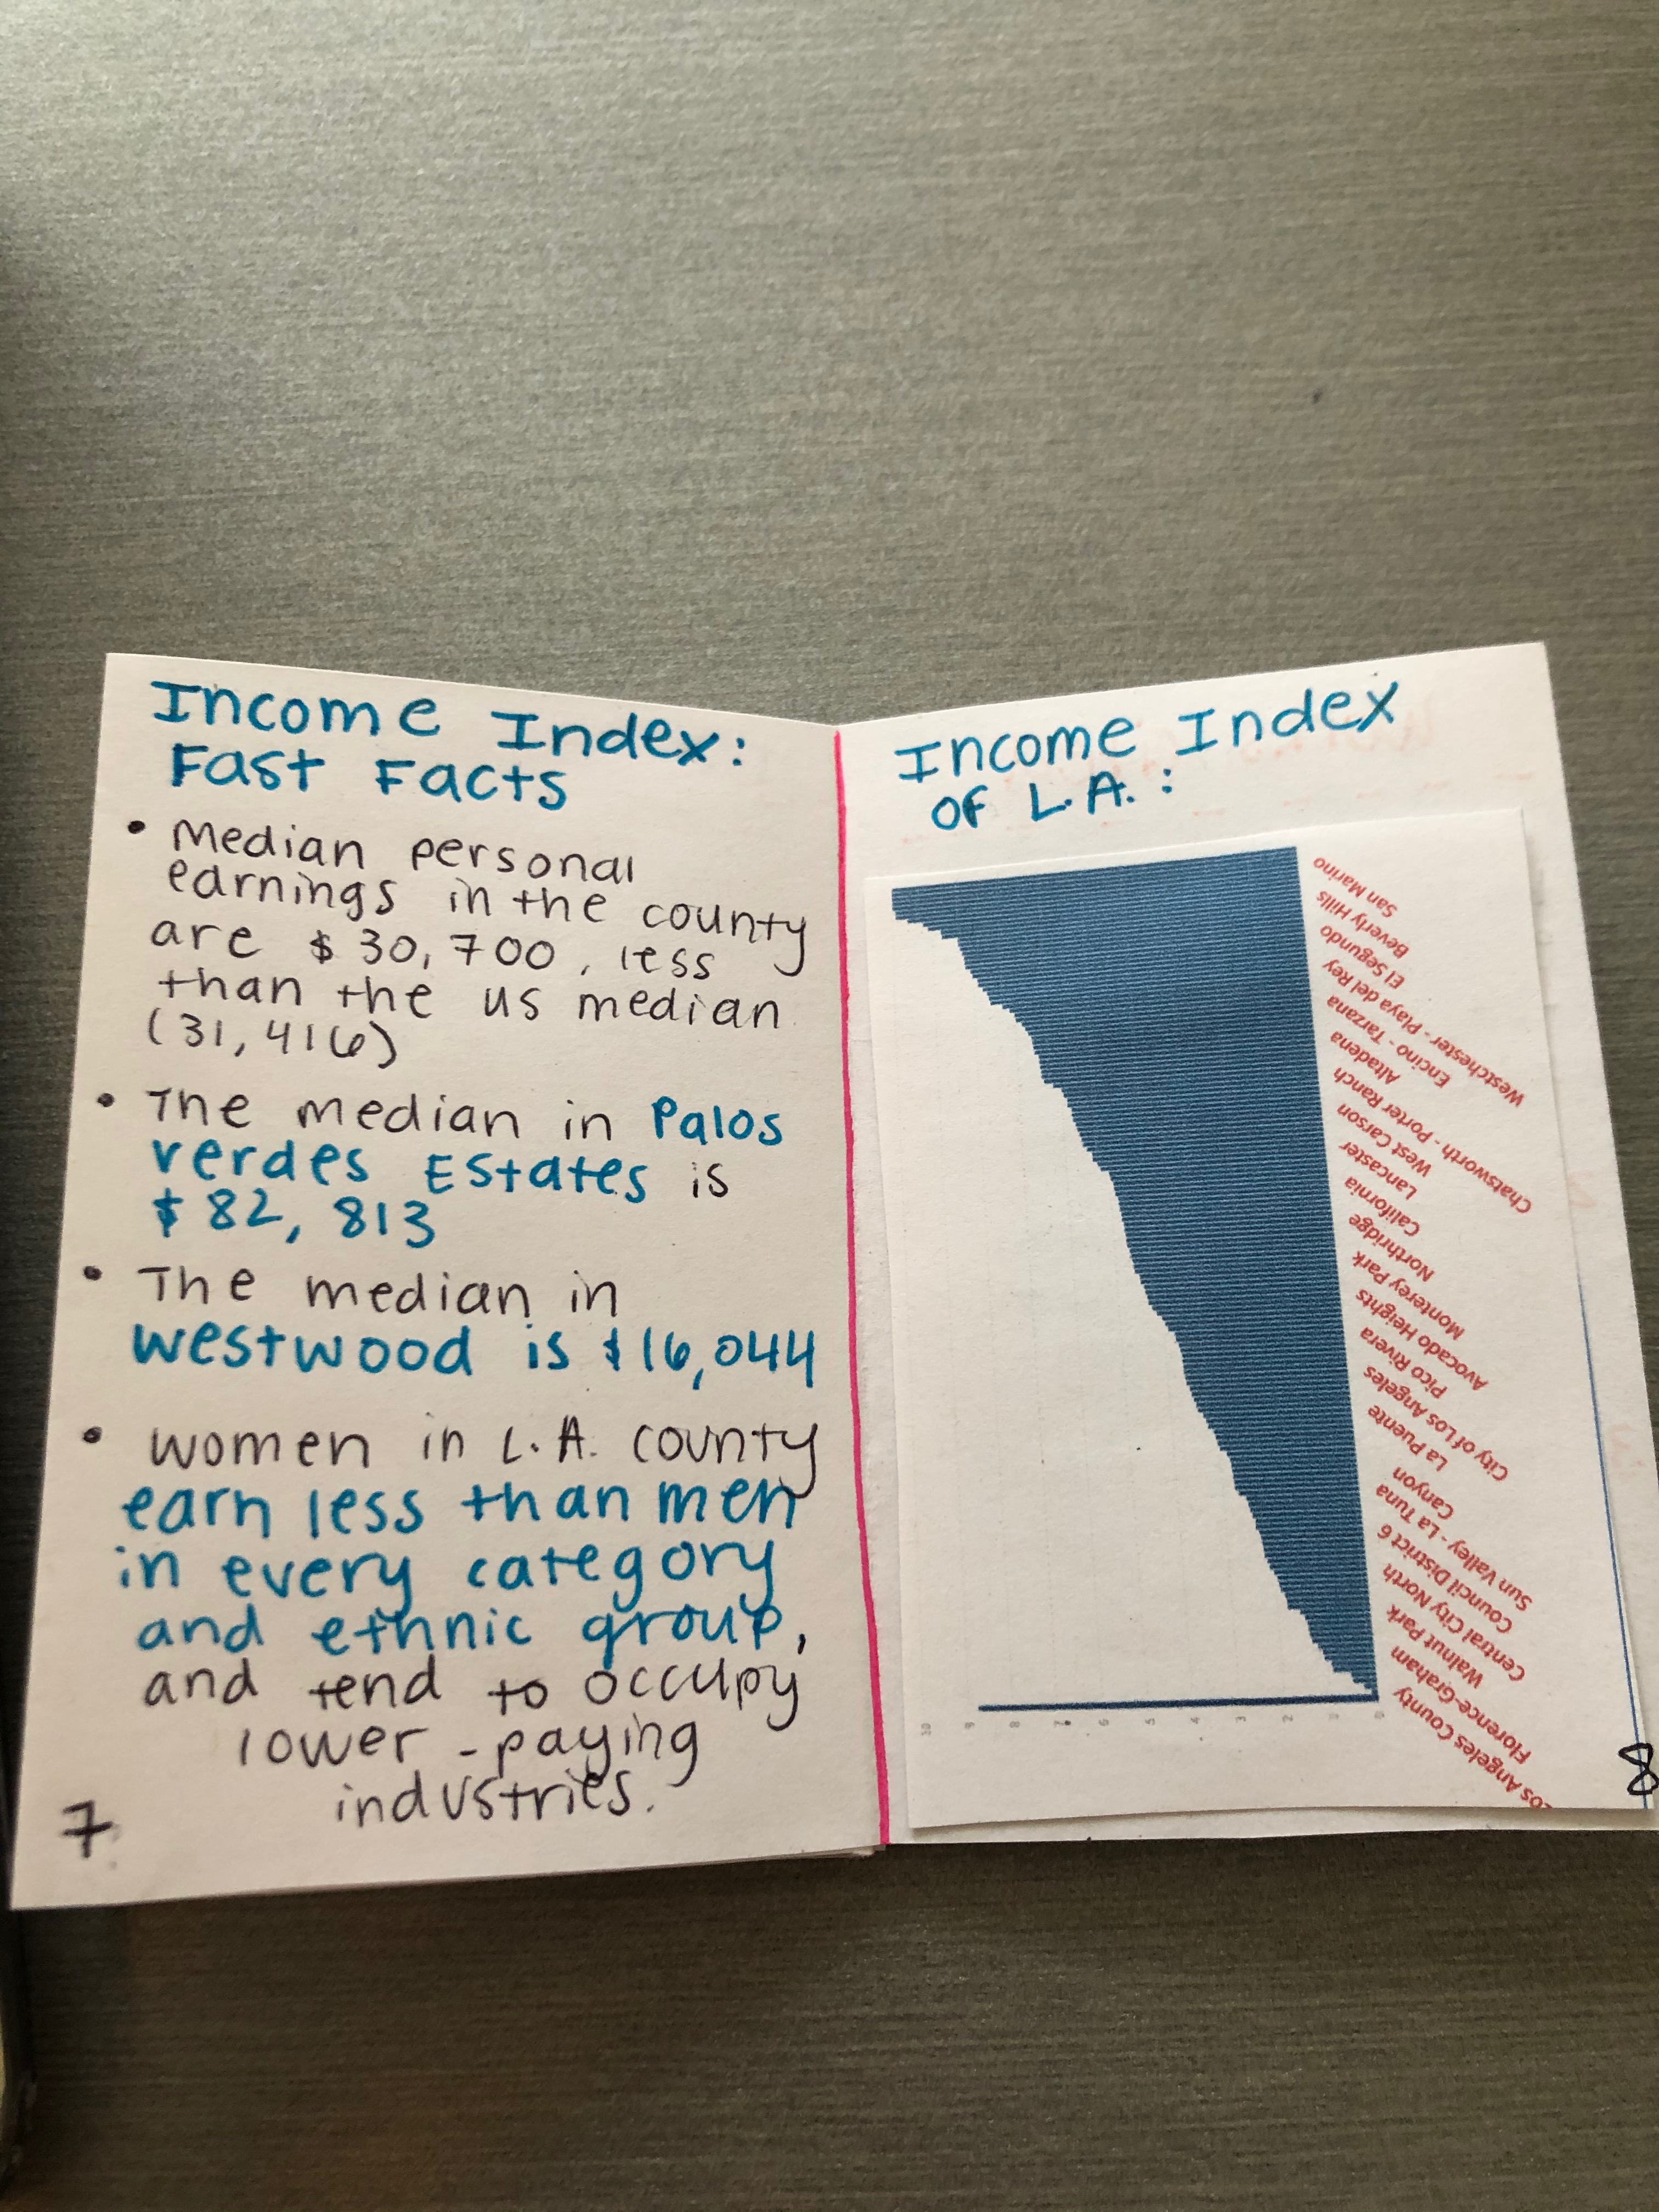 Income Index:
Fast Facts
• Median personal
earnings in the county
are $30,700, less
than the US median
(31,416)
• The median in Palos
verdes Estates is
$82,813
• The median in
westwood is $16,044
• women in L.A. county
earn less than men
in every category
and ethnic group,
and tend to occupy
lower-paying
industries.
7
Income Index
of L.A.:
San Marino
Beverly Hills
El Segundo
Westchester - Playa del Rey
Encino - Tarzana
Altadena
Chatsworth - Porter Ranch
West Carson
Lancaster
California
Northridge
Monterey Park
Avocado Heights
Pico Rivera
City of Los Angeles
La Puente
Sun Valley - La Tuna
Canyon
Council District 6
Central City North
Walnut Park
Florence-Graham
Los Angeles County
10
9
8
7
6
5
4
3
2
1
0
8